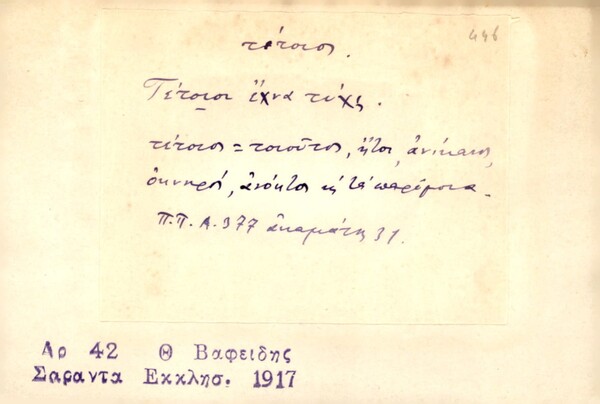 446
τέτοιοι.
Τέτοιοι ἔχνα τύχῃ.
τέτοιοι = τοιοῦτοι, ἤτοι, ἀνίκανοι,
ὀκνηροί, ἀνόητοι κ τὰ παρόμοια.
Π.Π. Α. 377 ἀκαμάτης 31.
Αρ 42 Θ Βαφειδης
Σαραντα Εκκλησ. 1917